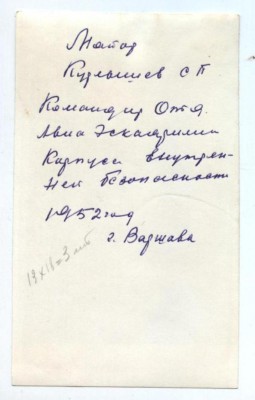 Майор
Курышев С П
Командир Отд.
Авиа Эскадрилии
Корпуса внутрен-
ней безопасности
1952 год
г. Варшава